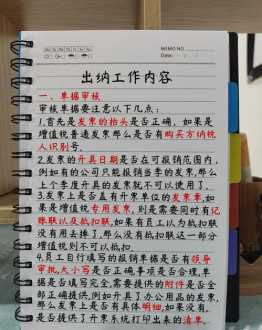 MEMO NO.
Date
出纳工作内容
一、单据审核
审核单据要注意以下几点:
1.首先是发票的抬头是否正确,如果是
增值税普通发票那么是否有购买方纳税
人识别号。
2.发票的开具日期是否在可报销范围内,
例如有的公司只能报销当季的发票,那么
上个季度开具的发票就不可以使用了。
3.发票上是否盖有开票单位的发票章,如
果是增值税专用发票,则是需要同时有记
账联以及抵扣联,如果有员工以为抵扣联
没有用丢掉了,那么没有抵扣联这一部分
增值税则不可以抵扣。
4.员工自行填写的报销单据是否有领导
审批,大小写是否正确,事项是否合理,单
据是否填写完全,需要提供的附件是否全
部正确提供,例如开具了办公用品的发票,
那么发票上是否有具体明细,如果没有,
是否提供了开票系统打印出来的清单。